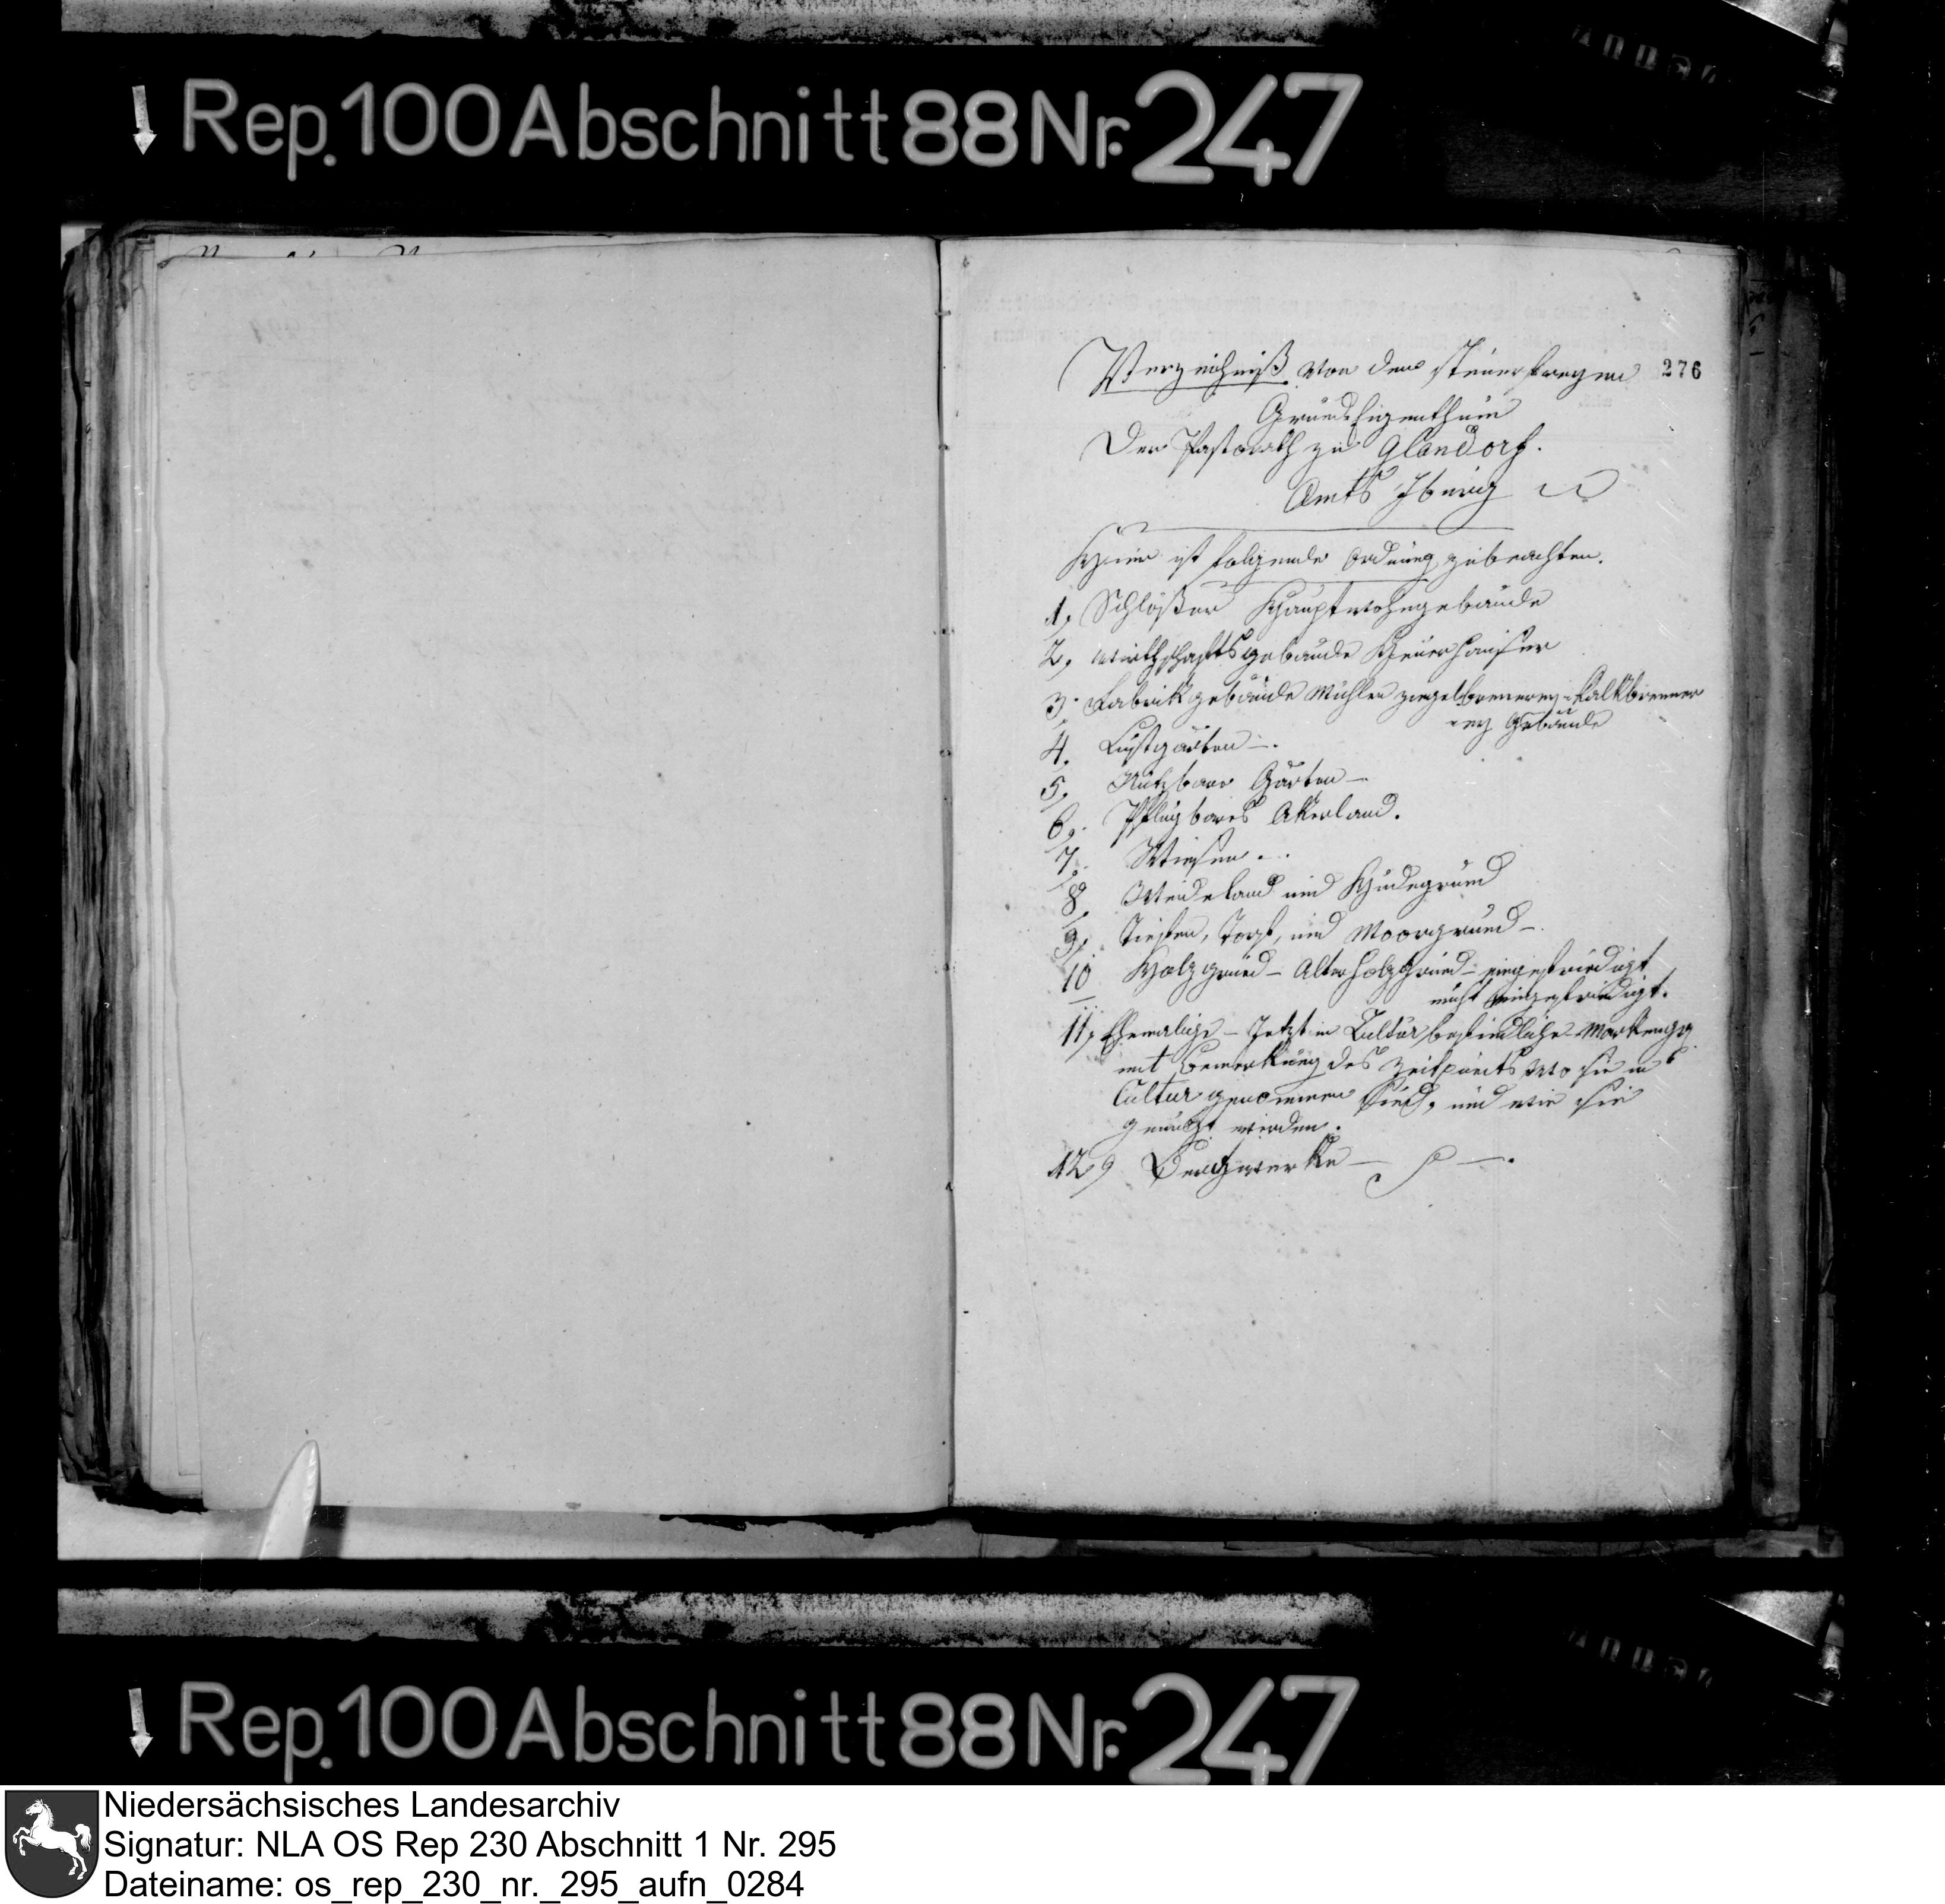 Rep. 100 Abschnitt 88 Nr. 247
276
Verzeichniß von dem steuerfreyen
Grund Eigenthum
Der Pastorath zu Glandorf.
Amts Iburg
Hier ist folgende Ordnung zu beachten.
1, Schlößer Hauptwohngebäude
2, Wirthschaftsgebäude Heuerhäuser
3. Fabrik gebäude Mühlen Ziegelbrennerey Kalkbrenner
ey Gebäude
4. Lustgärten —.
5, Nutzbare Gärten —
6, Pflugbares Akerland.
7, Wiesen —.
8, Weideland und Hudegrund
9, Torf, und Moorgrund —.
10 Holzgrund — Alter Holzgrund — eingefriedigt
nicht eingefriedigt.
11, Ehemalige — Jetzt in Cultur befindliche Marken
mit Bemerkung des Zeitpunts wo sie in
Cultur genommen sind, und wie sie
genutzt werden.
12, Bergwerke —
Rep. 100 Abschnitt 88 Nr. 247
Niedersächsisches Landesarchiv
Signatur: NLA OS Rep 230 Abschnitt 1 Nr. 295
Dateiname: os_rep_230_nr._295_aufn_0284